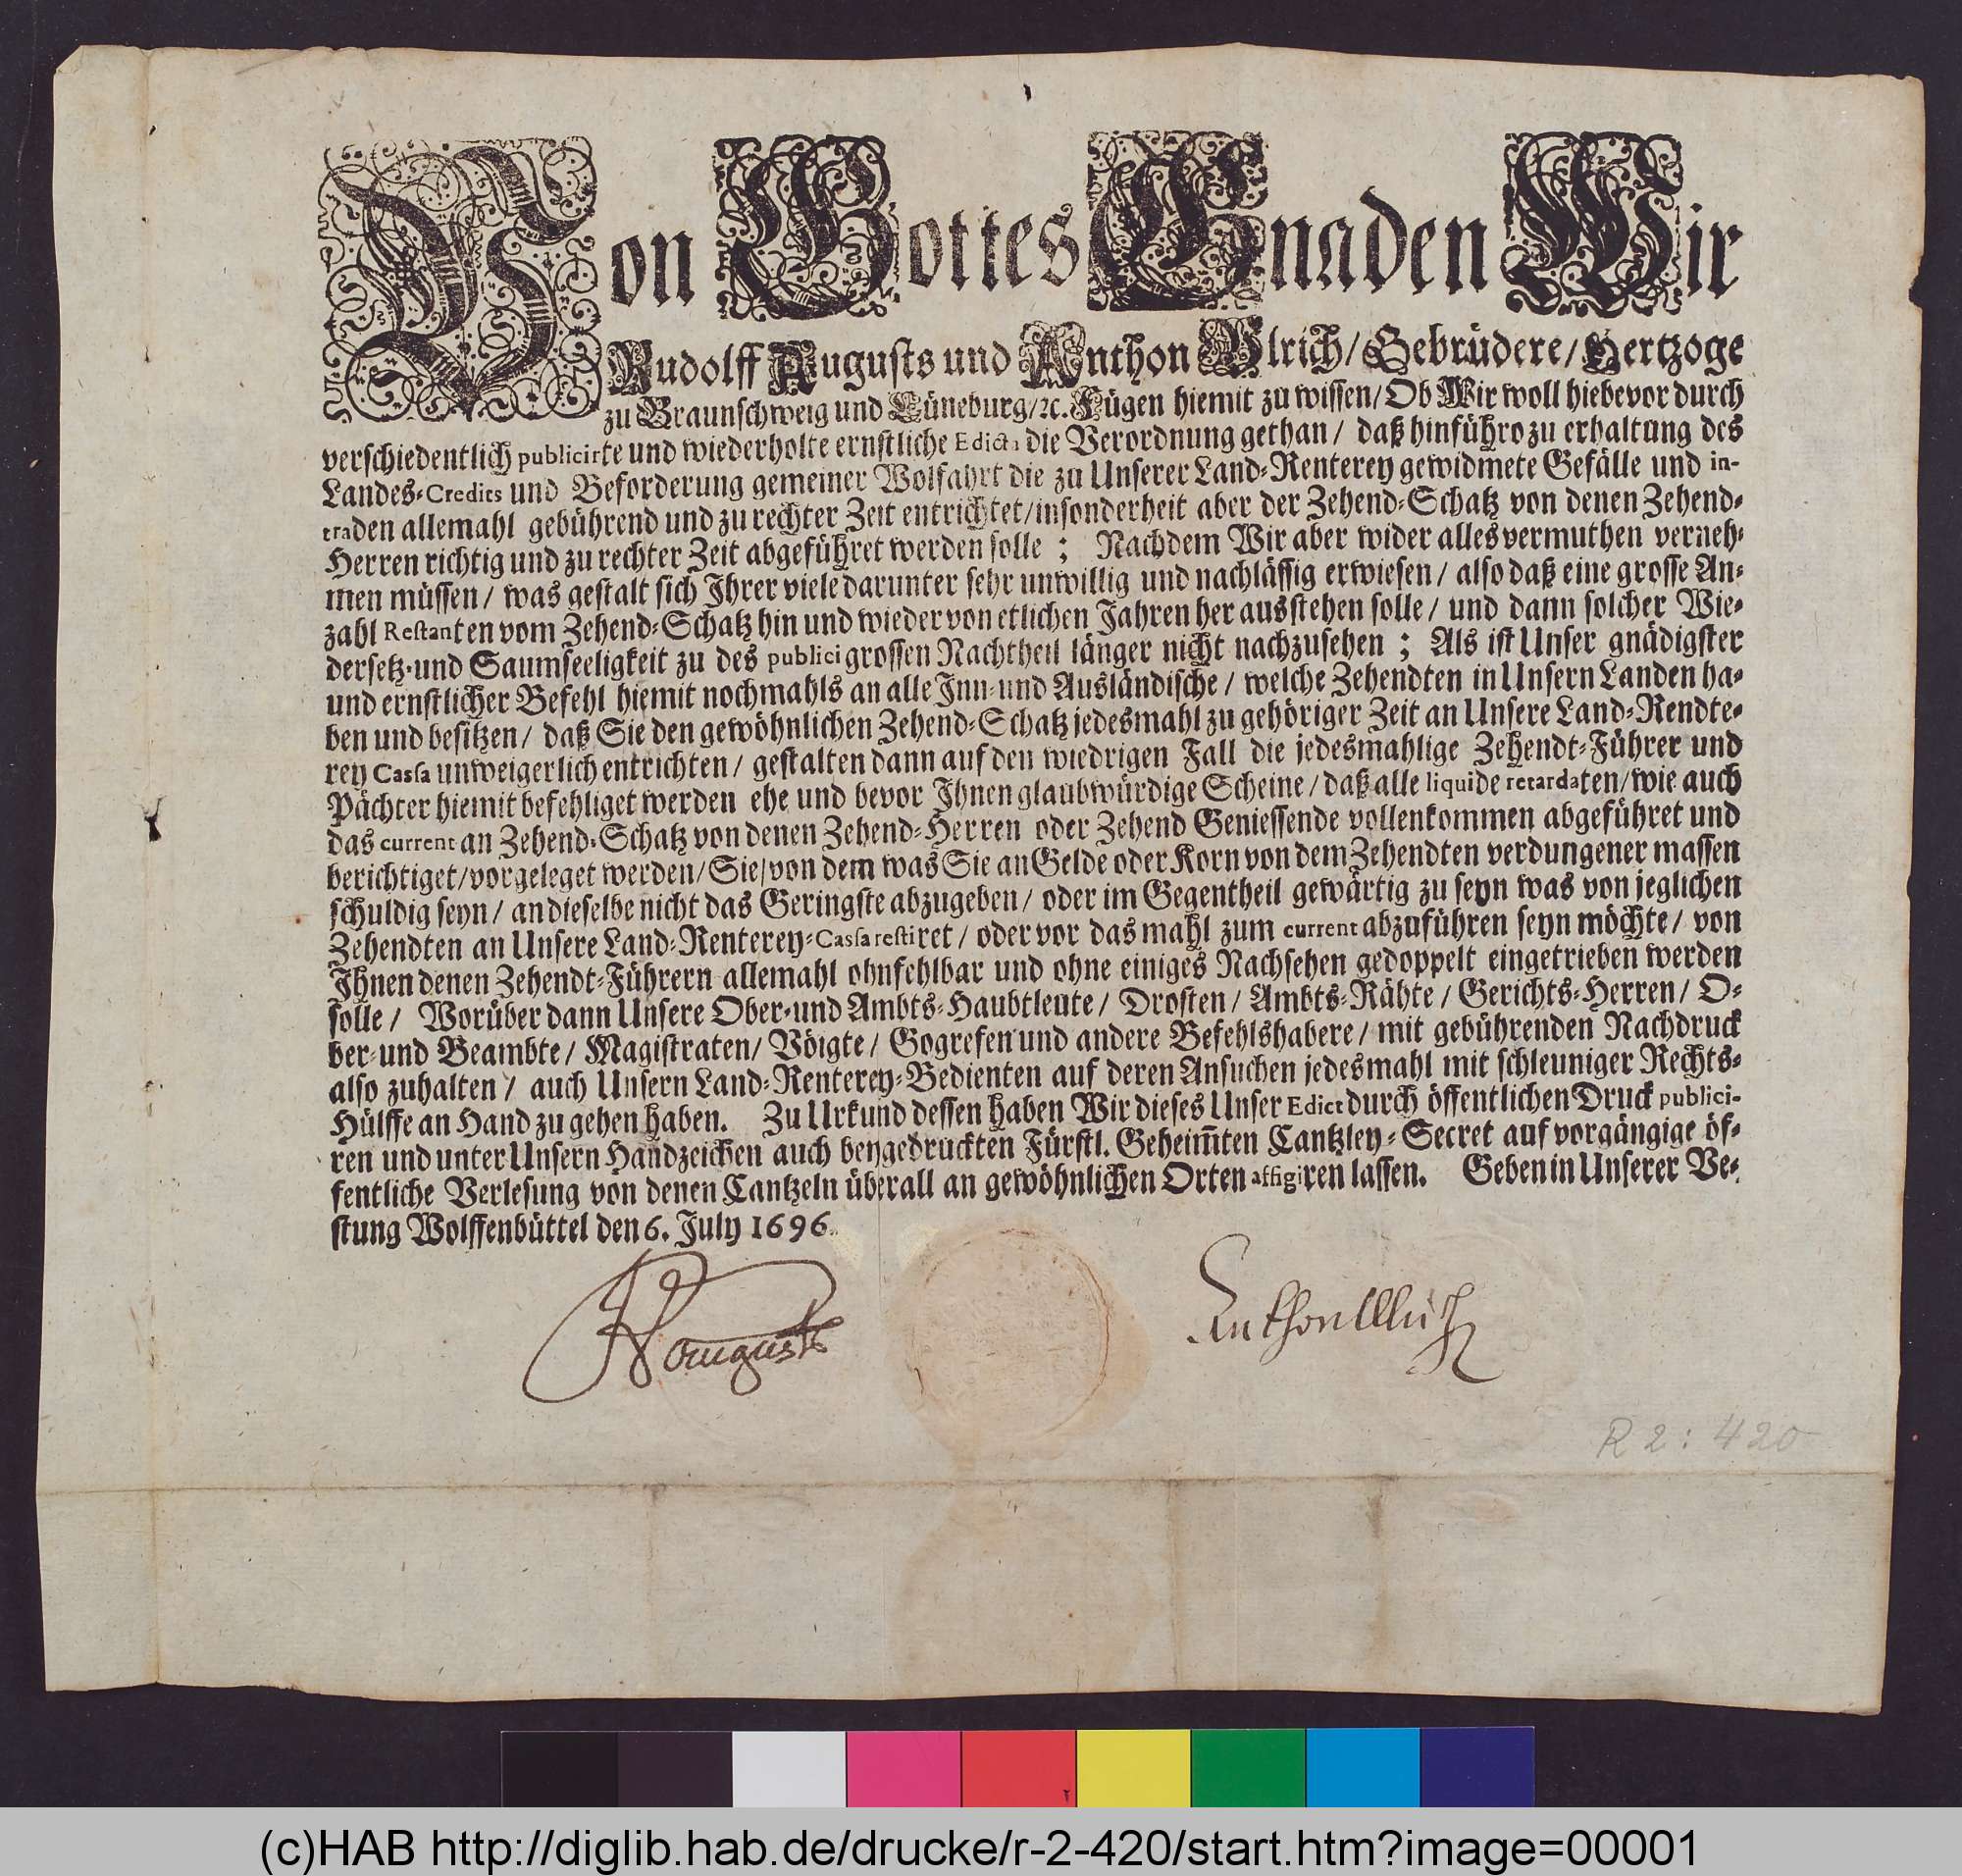 Von Gottes Gnaden Wir
Rudolff Augusts und Anthon Ulrich/ Gebrüdere/ Hertzoge
zu Braunschweig und Lüneburg/ ꝛc. Fügen hiemit zu wissen/ Ob Wir woll hiebevor durch
verschiedentlich publicirte und wiederholte ernstliche Edicta die Verordnung gethan/ daß hinführo zu erhaltung des
Landes-Credits und Beforderung gemeiner Wolfahrt die zu Unserer Land-Renterey gewidmete Gefälle und in-
traden allemahl gebührend und zu rechter Zeit entrichtet/ insonderheit aber der Zehend-Schatz von denen Zehend-
Herren richtig und zu rechter Zeit abgeführet werden solle ; Nachdem Wir aber wider alles vermuthen verneh-
men müssen/ was gestalt sich Ihrer viele darunter sehr unwillig und nachlässig erwiesen/ also daß eine grosse An-
zahl Restanten vom Zehend-Schatz hin und wieder von etlichen Jahren her ausstehen solle/ und dann solcher Wie-
dersetz-und Saumseeligkeit zu des publici grossen Nachtheil länger nicht nachzusehen ; Als ist Unser gnädigster
und ernstlicher Befehl hiemit nochmahls an alle Inn-und Ausländische/ welche Zehendten in Unsern Landen ha-
ben und besitzen/ daß Sie den gewöhnlichen Zehend-Schatz jedesmahl zu gehöriger Zeit an Unsere Land-Rendte-
rey Cassa unweigerlich entrichten/ gestalten dann auf den wiedrigen Fall die jedesmahlige Zehendt-Führer und
Pächter hiemit befehliget werden ehe und bevor Ihnen glaubwürdige Scheine/ daß alle liquide retardaten/ wie auch
das current an Zehend-Schatz von denen Zehend-Herren oder Zehend Geniessende vollenkommen abgeführet und
berichtiget/ vorgeleget werden/ Sie/ von dem was Sie an Gelde oder Korn von dem Zehendten verdungener massen
schuldig seyn/ an dieselbe nicht das Geringste abzugeben/ oder im Gegentheil gewärtig zu seyn was von jeglichen
Zehendten an Unsere Land-Renterey-Cassa restiret/ oder vor das mahl zum current abzuführen seyn möchte/ von
Ihnen denen Zehendt-Führern allemahl ohnfehlbar und ohne einiges Nachsehen gedoppelt eingetrieben werden
solle/ Worüber dann Unsere Ober-und Ambts-Haubtleute/ Drosten/ Ambts-Rähte/ Gerichts-Herren/ O-
ber-und Beambte/ Magistraten/ Vöigte/ Gogrefen und andere Befehlshabere/ mit gebührenden Nachdruck
also zuhalten/ auch Unsern Land-Renterey-Bedienten auf deren Ansuchen jedesmahl mit schleuniger Rechts-
Hülffe an Hand zu gehen haben. Zu Urkund dessen haben Wir dieses Unser Edict durch öffentlichen Druck publici-
ren und unter Unsern Handzeichen auch beygedruckten Fürstl. Geheim̃ten Cantzley-Secret auf vorgängige öf-
fentliche Verlesung von denen Cantzeln überall an gewöhnlichen Orten affigiren lassen. Geben in Unserer Ve-
stung Wolffenbüttel den 6. July 1696.
RAugusts
Anthon Ulrich
R 2 : 420
(c)HAB http://diglib.hab.de/drucke/r-2-420/start.htm?image=00001